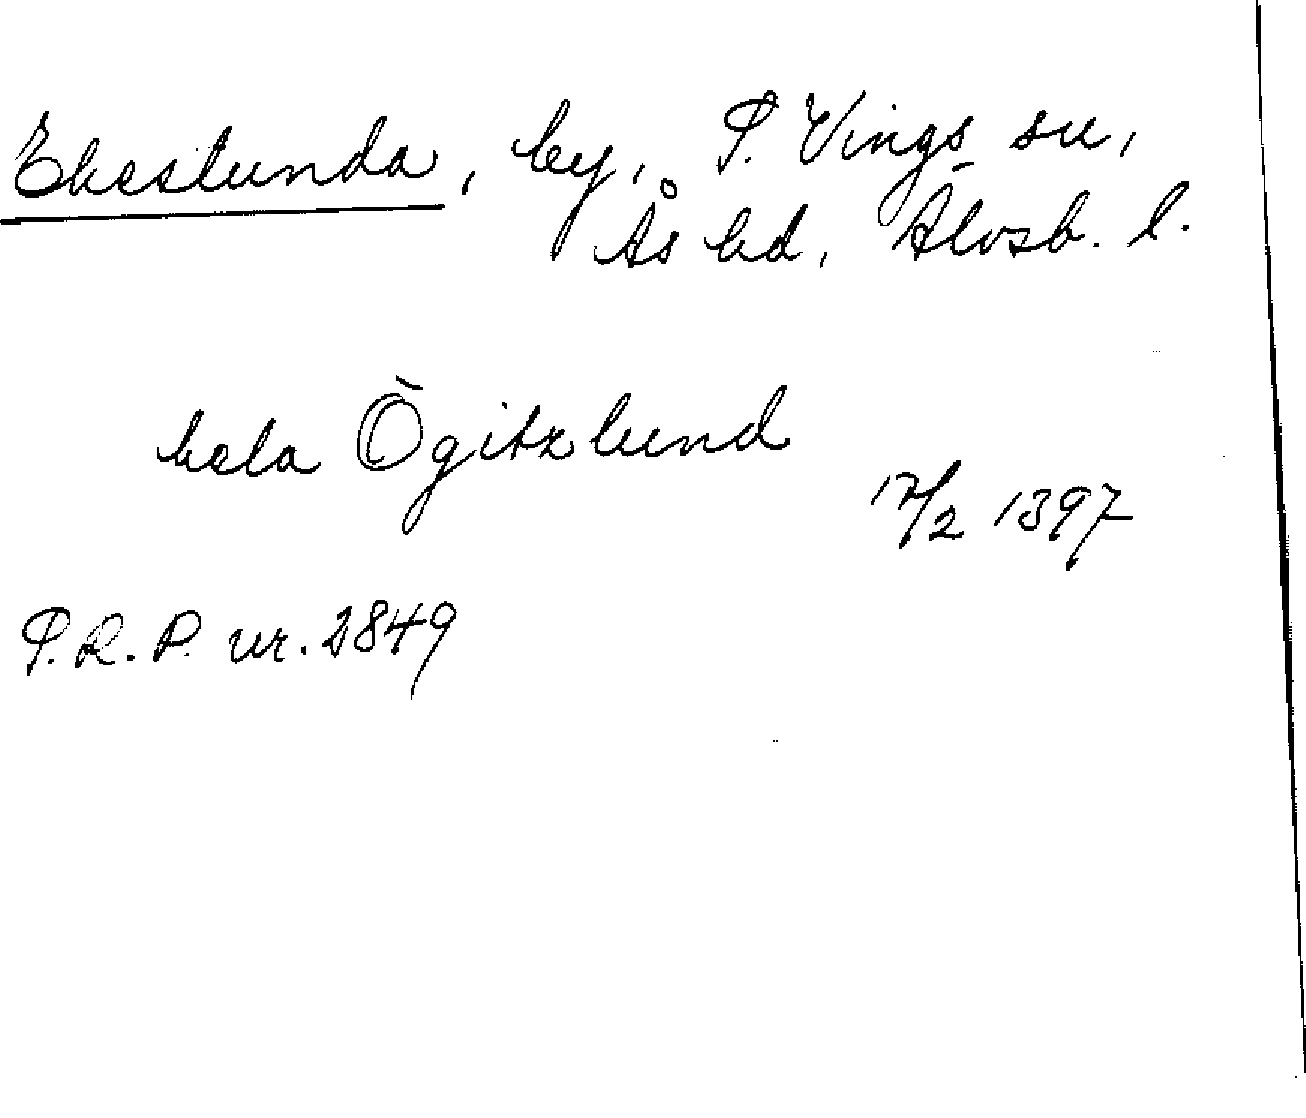 Ekeslunda, by, S. Vings sn,
Ås hd, Älvsb. l.
hela Ögitzlund
12/2 1397
S.R.P. nr. 2849